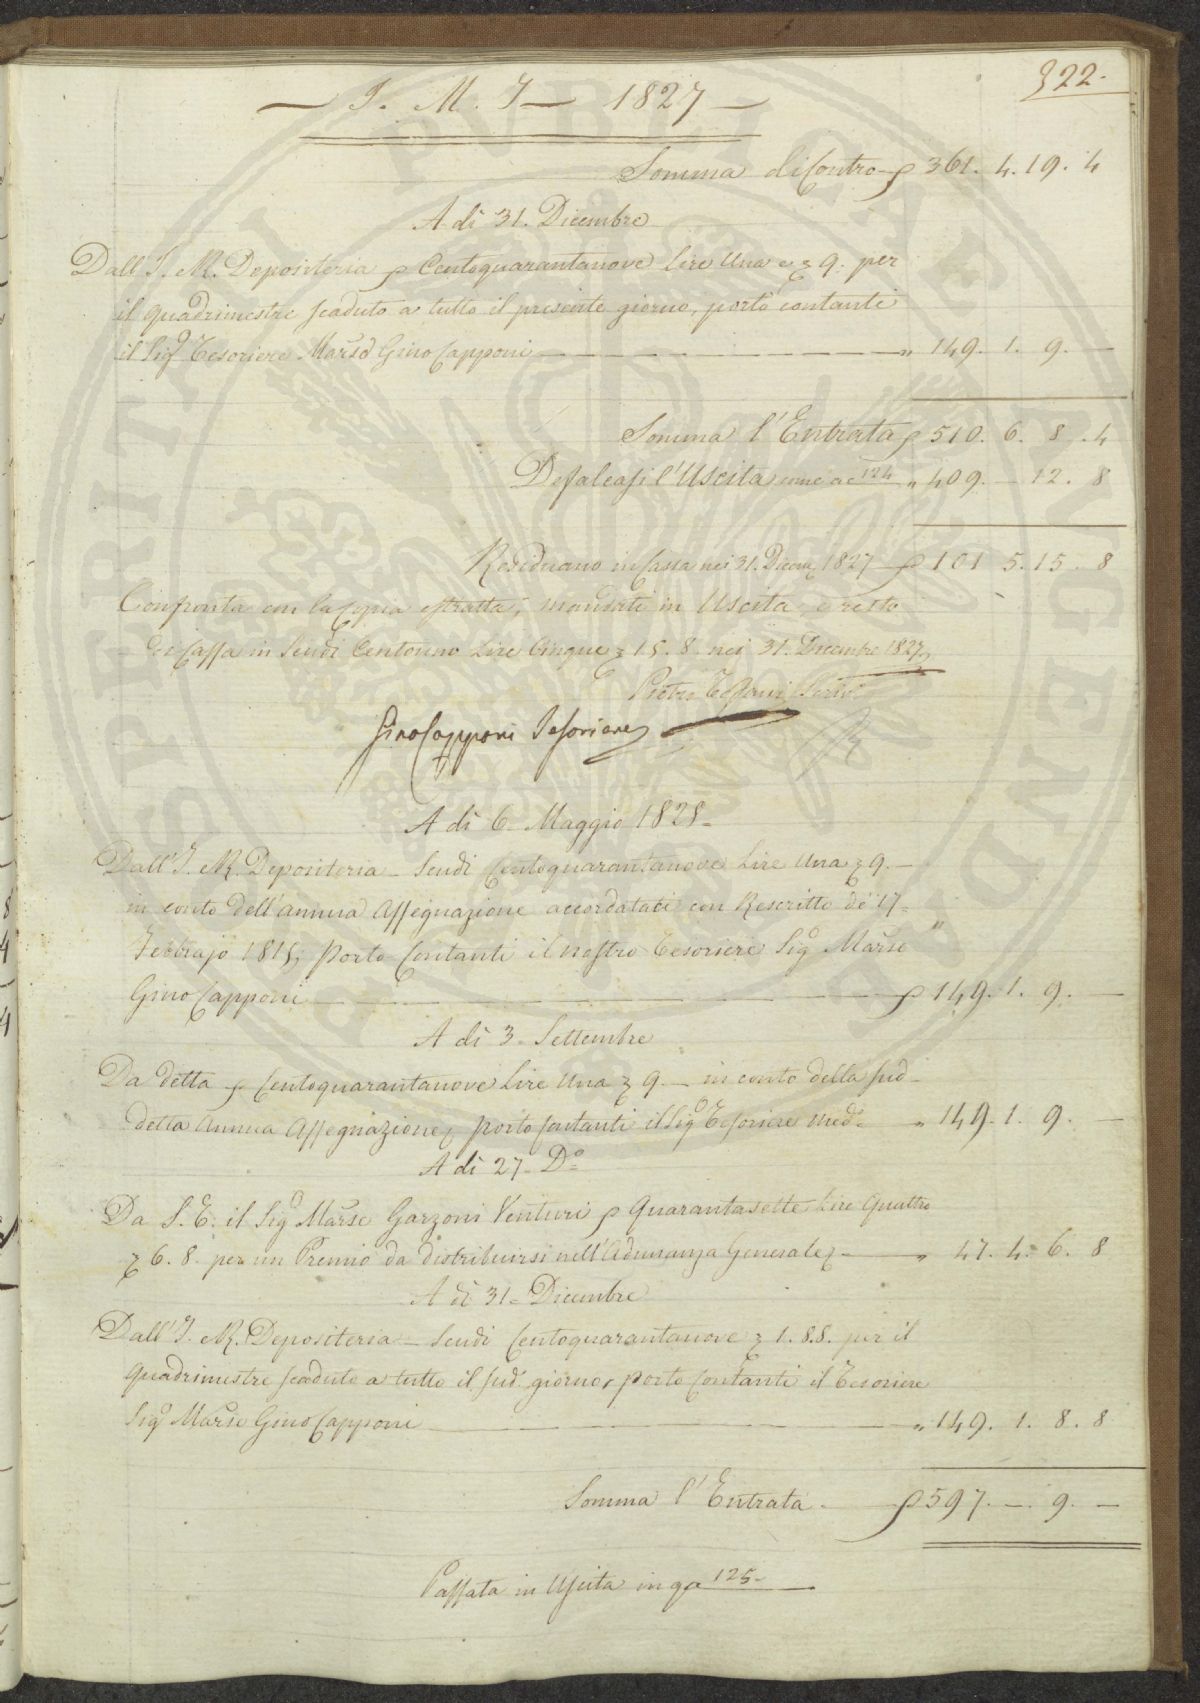 322.
J. M. J. 1827
Somma di Contro 361. 4. 19. 4
A di 31. Dicembre
Dall'I. e R. Depositeria Centoquarantanove Lire Una e 9. per
il quadrimestre scaduto a tutto il presente giorno, portò contanti
il Sigr Tesoriere Marse Gino Capponi — " 149. 1. 9. —
Somma l'Entrata 510. 6. 8. 4
Defalcasi l'Uscita come a c 124 " 409. — 12. 8
Residuano in Cassa nei 31. Dicem. 1827 101 5. 15. 8
Confronta con la copia estratta, mandati in Uscita, e resto
di Cassa in Scudi Centouno Lire Cinque 15. 8. nei 31. Dicembre 1827
Pietro Scriv.
Gino Capponi Tesoriere
A di 6. Maggio 1828.
Dall'I. e R. Depositeria — Scudi Centoquarantanove Lire Una 9. —
in conto dell'Annua Assegnazione accordataci con Rescritto de' 17
Febbrajo 1818, Portò Contanti il nostro Tesoriere Sigr Marse "
Gino Capponi — 149. 1. 9. —
A di 3. Settembre
Da detta Centoquarantanove Lire Una 9. — in conto della sud-
detta Annua Assegnazione, portò contanti il Sigr Tesoriere medo " 149. 1. 9. —
A di 27. Do
Da S. E. il Sigr Marse Garzoni Venturi Quarantasette Lire Quattro
6. 8. per un Premio da distribuirsi nell'Adunanza Generale — " 47. 4. 6. 8
A di 31. Dicembre
Dall'I. e R. Depositeria — Scudi Centoquarantanove 1. 8. 8. per il
quadrimestre scaduto a tutto il sud. giorno, portò Contanti il Tesoriere
Sigr Marse Gino Capponi — " 149. 1. 8. 8
Somma l'Entrata. — 597. — 9. —
Passata in Uscita in qo 125
SPIRITI PUBLICAE